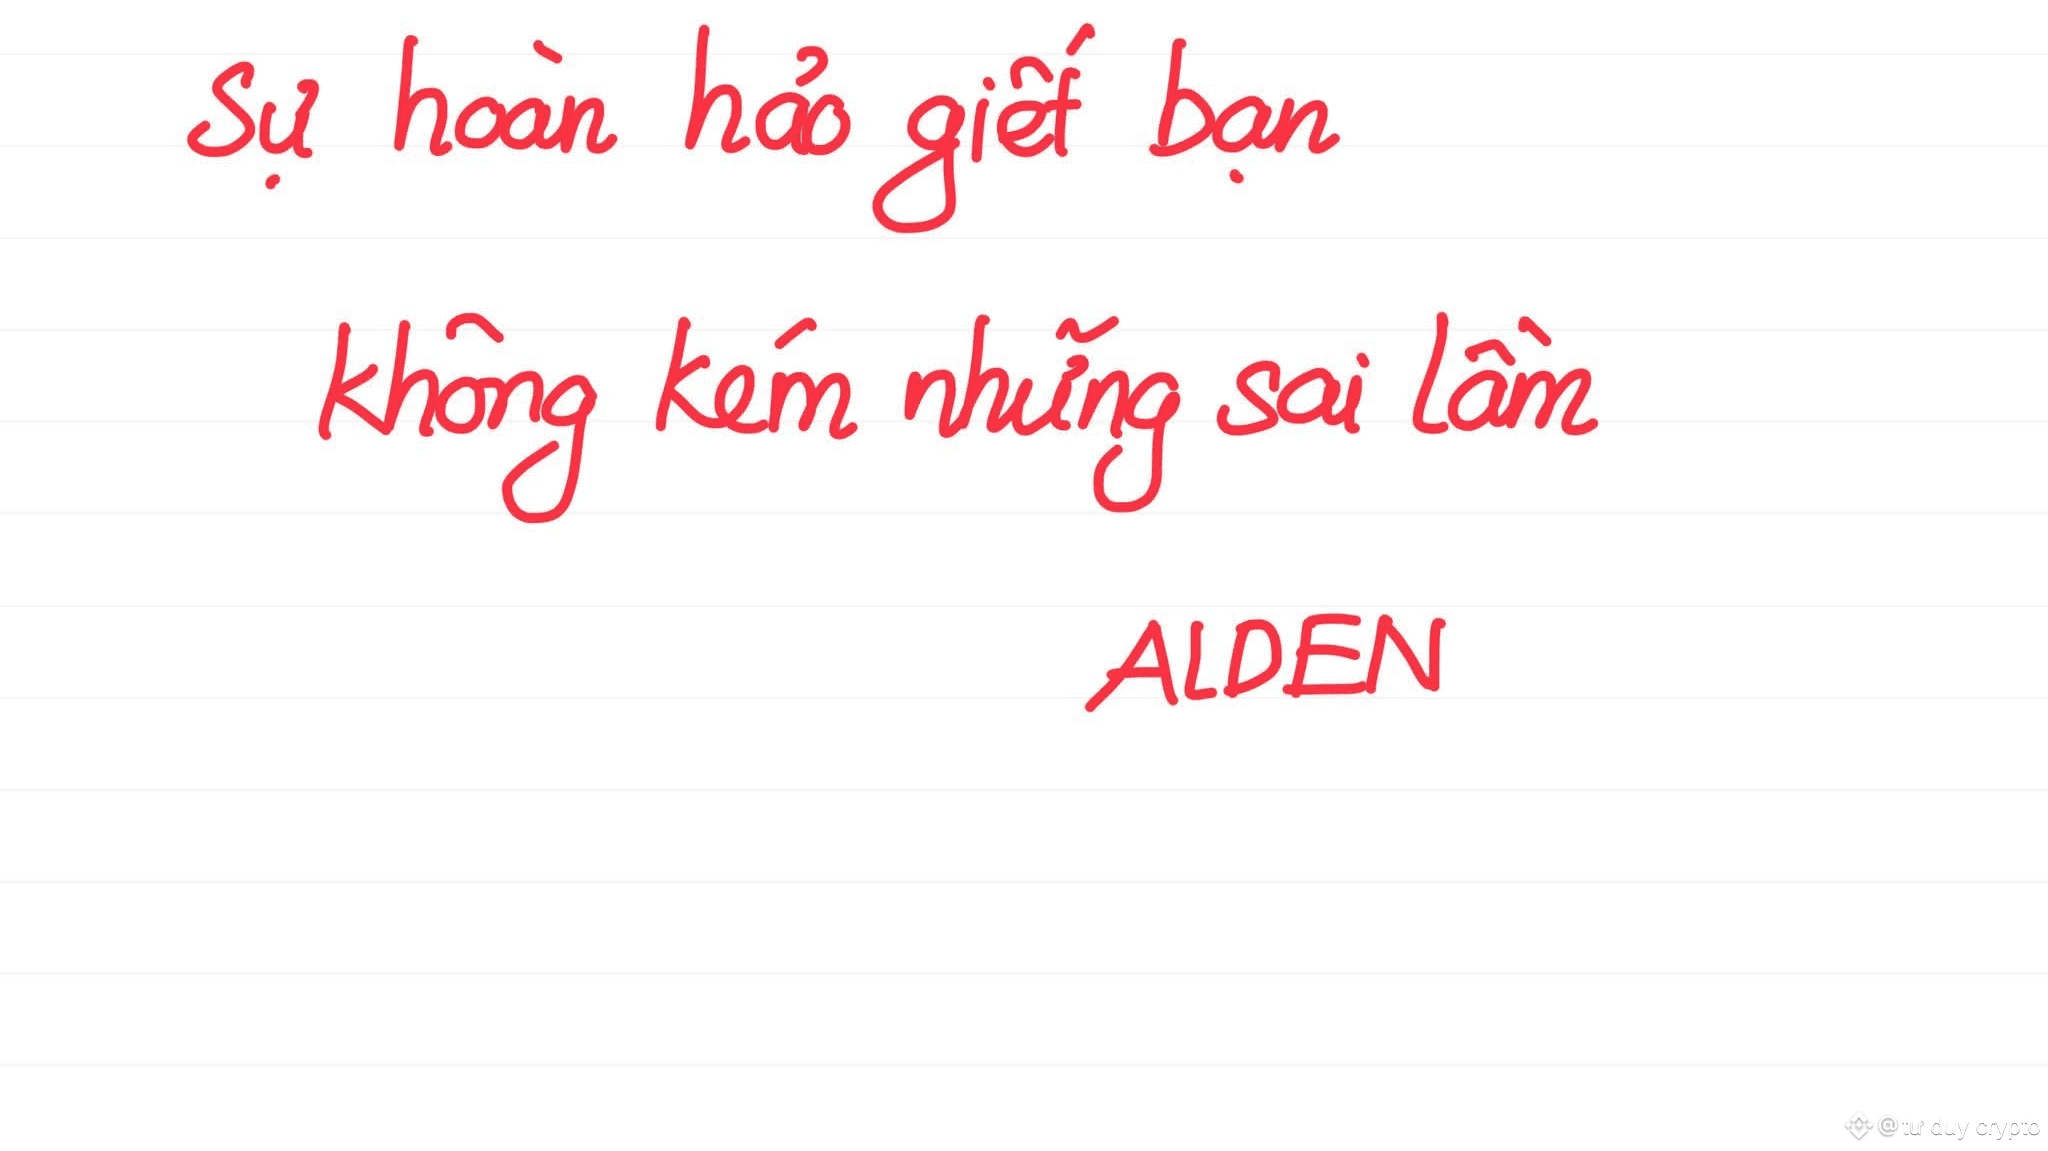 Sự hoàn hảo giết bạn
không kém những sai lầm
ALDEN
@tư duy crypto